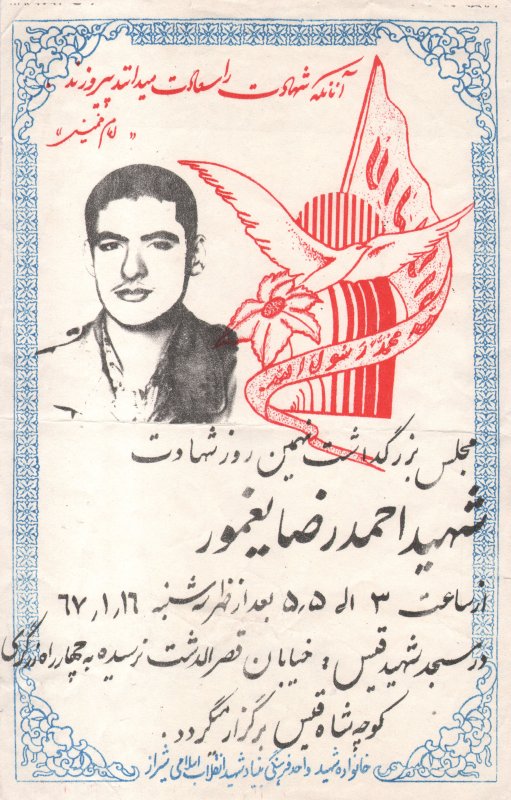 آنانکه شهادت را سعادت میدانند پیروزند.
«امام خمینی»
محمد رسول الله
مجلس بزرگداشت نهمین روز شهادت
شهید احمدرضا یغمور
از ساعت ۳ الی ۵٫۵ بعد از ظهر سه‌شنبه ۶۷٫۱٫۱۶
در مسجد شهید قیس : خیابان قصرالدشت نرسیده به چهارراه زرگری
کوچه شاه قیس برگزار میگردد.
خانواده شهید واحد فرهنگی بنیاد شهید انقلاب اسلامی شیراز